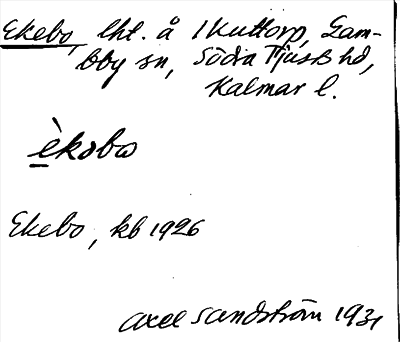 Ekebo, lht. å 1 Kuttorp, Gam-
leby sn, Södra Tjusts hd,
Kalmar l.
èkobo
Ekebo, kb 1926
Axel Sandström 1931